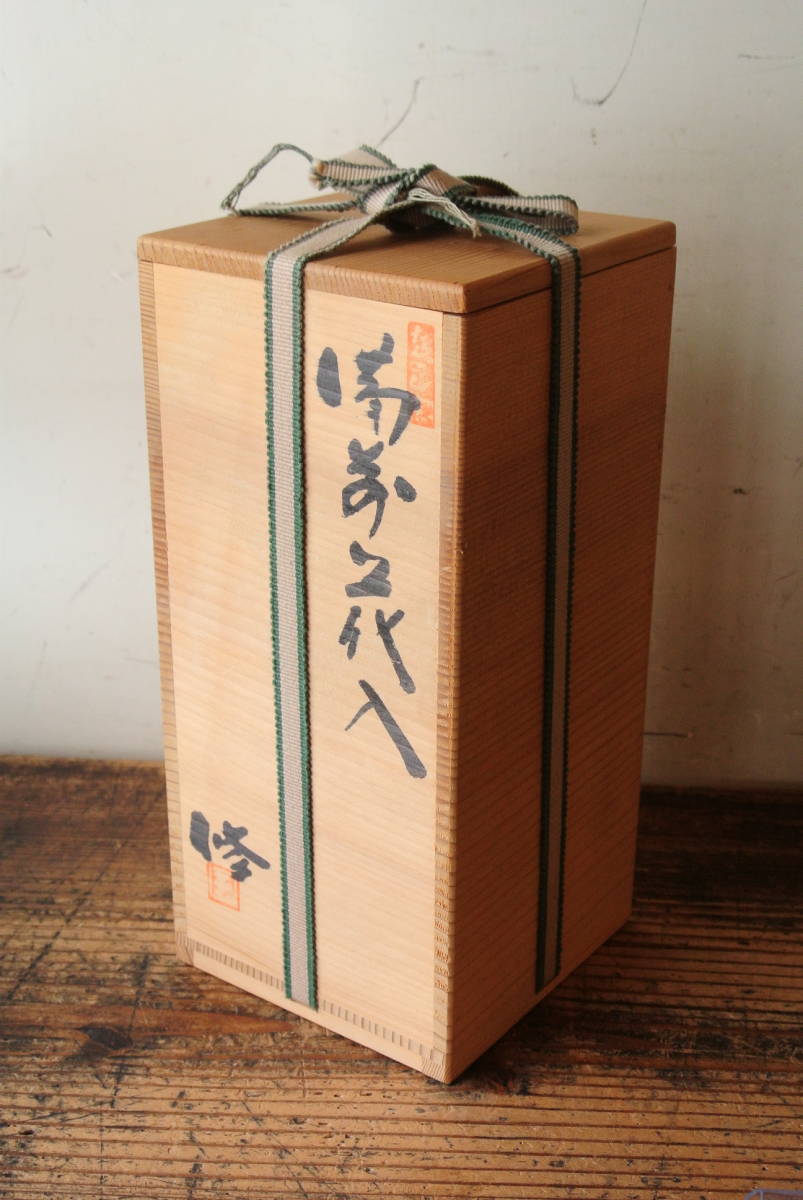 備前花入
修